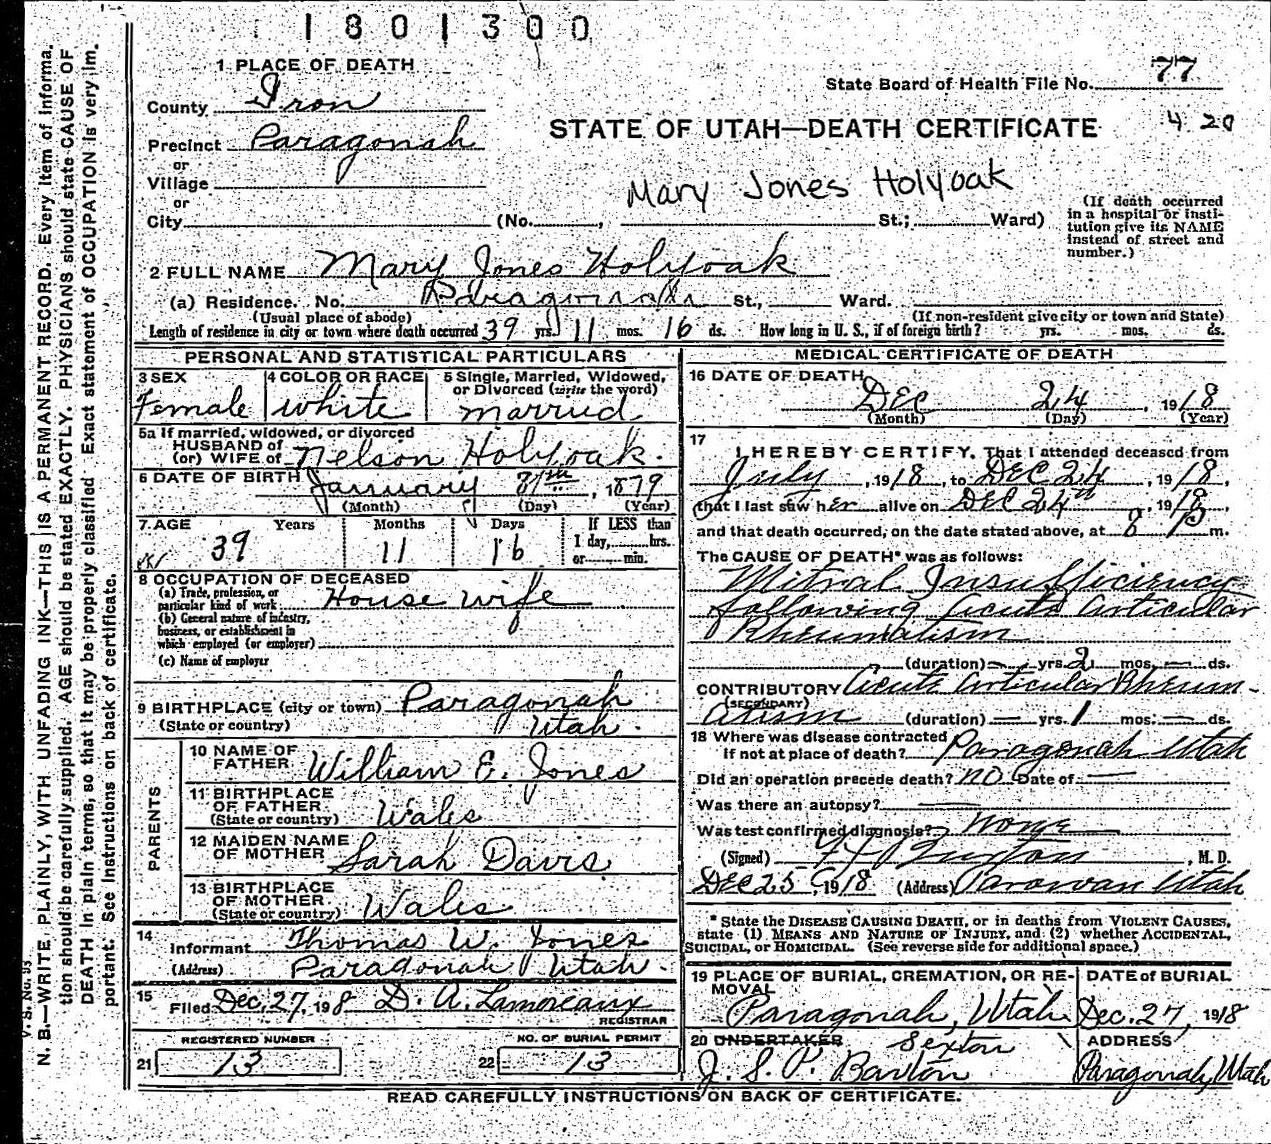 1801300
1 PLACE OF DEATH
State Board of Health File No. 77
County Iron
STATE OF UTAH—DEATH CERTIFICATE 4 20
Precinct Paragonah
or
Village
or
Mary Jones Holyoak
City (No. , St.; Ward)
(If death occurred
in a hospital or insti-
tution give its NAME
instead of street and
number.)
2 FULL NAME Mary Jones Holyoak
(a) Residence. No. Paragonah St., Ward.
(Usual place of abode) (If non-resident give city or town and State)
Length of residence in city or town where death occurred 39 yrs. 11 mos. 16 ds. How long in U. S., if of foreign birth? yrs. mos. ds.
PERSONAL AND STATISTICAL PARTICULARS
3 SEX 4 COLOR OR RACE 5 Single, Married, Widowed,
or Divorced (write the word)
Female white married
5a If married, widowed, or divorced
HUSBAND of
(or) WIFE of Nelson Holyoak.
6 DATE OF BIRTH January 8th, 1879
(Month) (Day) (Year)
7. AGE Years Months Days If LESS than
39 11 16 1 day, hrs.
or min.
8 OCCUPATION OF DECEASED
(a) Trade, profession, or
particular kind of work House wife
(b) General nature of industry,
business, or establishment in
which employed (or employer)
(c) Name of employer
9 BIRTHPLACE (city or town) Paragonah
(State or country) Utah.
PARENTS
10 NAME OF
FATHER William E. Jones
11 BIRTHPLACE
OF FATHER
(State or country) Wales
12 MAIDEN NAME
OF MOTHER Sarah Davis
13 BIRTHPLACE
OF MOTHER
(State or country) Wales
14
Informant Thomas W. Jones
(Address) Paragonah Utah.
15
Filed Dec. 27, 1918 D. A. Lamoreaux
REGISTRAR
REGISTERED NUMBER NO. OF BURIAL PERMIT
21 13 22 13
MEDICAL CERTIFICATE OF DEATH
16 DATE OF DEATH
Dec 24, 1918
(Month) (Day) (Year)
17
I HEREBY CERTIFY, That I attended deceased from
July, 1918, to Dec 24, 1918,
that I last saw her alive on Dec 24th, 1918,
and that death occurred, on the date stated above, at 8 P m.
The CAUSE OF DEATH* was as follows:
Mitral Insufficiency
following Acute Articular
Rheumatism
(duration) — yrs. 2 mos. — ds.
CONTRIBUTORY Acute Articular Rheum-
(SECONDARY)
atism (duration) — yrs. 1 mos. — ds.
18 Where was disease contracted
if not at place of death? Paragonah Utah
Did an operation precede death? no Date of —
Was there an autopsy? —
Was test confirmed diagnosis? None
(Signed) , M. D.
Dec 25, 1918 (Address) Parowan Utah
* State the DISEASE CAUSING DEATH, or in deaths from VIOLENT CAUSES,
state (1) MEANS AND NATURE OF INJURY, and (2) whether ACCIDENTAL,
SUICIDAL, or HOMICIDAL. (See reverse side for additional space.)
19 PLACE OF BURIAL, CREMATION, OR RE-
MOVAL
DATE OF BURIAL
Paragonah, Utah Dec. 27, 1918
20 UNDERTAKER Sexton ADDRESS
J. S. P. Barton Paragonah, Utah
READ CAREFULLY INSTRUCTIONS ON BACK OF CERTIFICATE.
V. S. No.
N. B.—WRITE PLAINLY, WITH UNFADING INK—THIS IS A PERMANENT RECORD. Every item of informa-
tion should be carefully supplied. AGE should be stated EXACTLY. PHYSICIANS should state CAUSE OF
DEATH in plain terms, so that it may be properly classified. Exact statement of OCCUPATION is very im-
portant. See instructions on back of certificate.